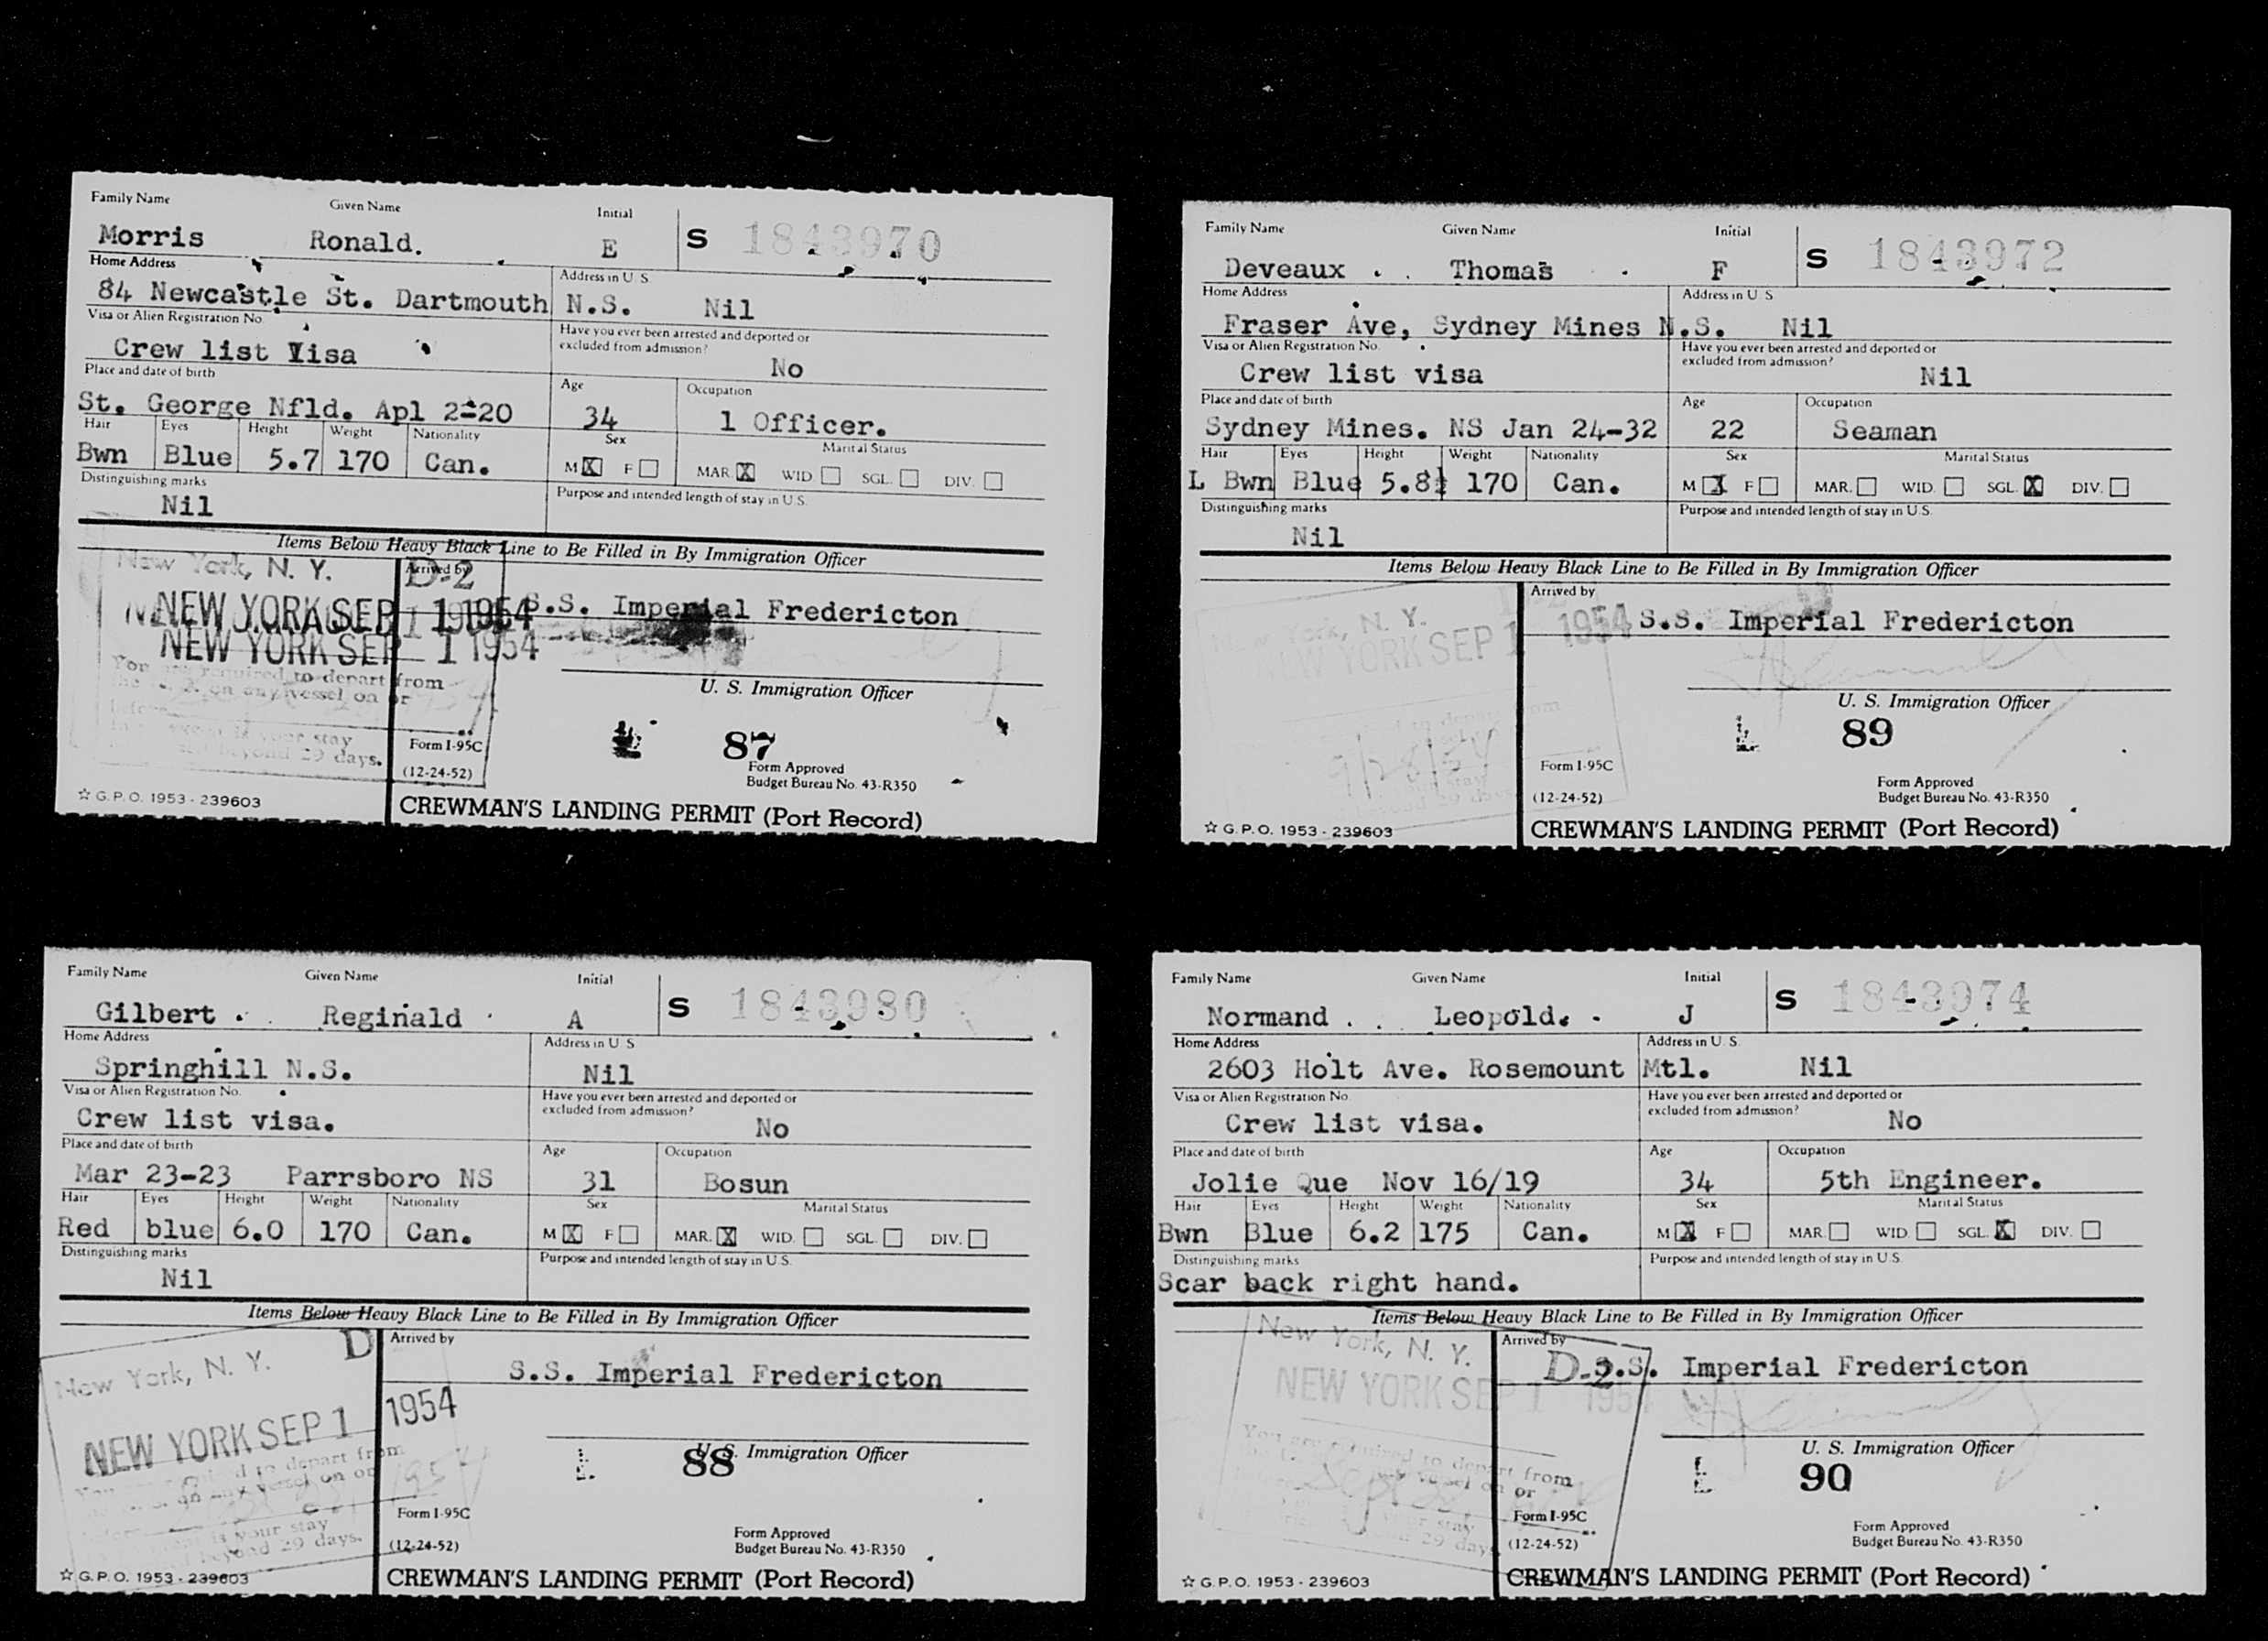 Family Name Given Name Initial
Morris Ronald. E S 1843970
Home Address Address in U.S.
84 Newcastle St. Dartmouth N.S. Nil
Visa or Alien Registration No. Have you ever been arrested and deported or excluded from admission?
Crew list Visa No
Place and date of birth Age Occupation
St. George Nfld. Apl 2-20 34 1 Officer.
Hair Eyes Height Weight Nationality Sex Marital Status
Bwn Blue 5.7 170 Can. M X F MAR. X WID. SGL. DIV.
Distinguishing marks Purpose and intended length of stay in U.S.
Nil
Items Below Heavy Black Line to Be Filled in By Immigration Officer
New York, N. Y. Arrived by D-2
NEW YORK SEP 1 1954 S.S. Imperial Fredericton
NEW YORK SEP 1 1954
You are required to depart from
on any vessel on or
U. S. Immigration Officer
your stay
beyond 29 days.
87
Form I-95C
(12-24-52)
Form Approved
Budget Bureau No. 43-R350
☆ G.P.O. 1953-239603
CREWMAN'S LANDING PERMIT (Port Record)
Family Name Given Name Initial
Deveaux Thomas F S 1843972
Home Address Address in U.S.
Fraser Ave, Sydney Mines N.S. Nil
Visa or Alien Registration No. Have you ever been arrested and deported or excluded from admission?
Crew list visa Nil
Place and date of birth Age Occupation
Sydney Mines. NS Jan 24-32 22 Seaman
Hair Eyes Height Weight Nationality Sex Marital Status
L Bwn Blue 5.8½ 170 Can. M X F MAR. WID. SGL. X DIV.
Distinguishing marks Purpose and intended length of stay in U.S.
Nil
Items Below Heavy Black Line to Be Filled in By Immigration Officer
Arrived by
N. Y.
NEW YORK SEP 1 1954 S.S. Imperial Fredericton
U. S. Immigration Officer
L 89
9/28/54
Form I-95C
(12-24-52)
Form Approved
Budget Bureau No. 43-R350
☆ G.P.O. 1953-239603
CREWMAN'S LANDING PERMIT (Port Record)
Family Name Given Name Initial
Gilbert Reginald A S 1843980
Home Address Address in U.S.
Springhill N.S. Nil
Visa or Alien Registration No. Have you ever been arrested and deported or excluded from admission?
Crew list visa. No
Place and date of birth Age Occupation
Mar 23-23 Parrsboro NS 31 Bosun
Hair Eyes Height Weight Nationality Sex Marital Status
Red blue 6.0 170 Can. M X F MAR. X WID. SGL. DIV.
Distinguishing marks Purpose and intended length of stay in U.S.
Nil
Items Below Heavy Black Line to Be Filled in By Immigration Officer
New York, N. Y. D Arrived by
S.S. Imperial Fredericton
NEW YORK SEP 1 1954
to depart from
on any vessel on or
L. 88 U. S. Immigration Officer
is your stay
beyond 29 days.
Form I-95C
(12-24-52)
Form Approved
Budget Bureau No. 43-R350
☆ G.P.O. 1953-239603
CREWMAN'S LANDING PERMIT (Port Record)
Family Name Given Name Initial
Normand Leopold. J S 1843974
Home Address Address in U.S.
2603 Holt Ave. Rosemount Mtl. Nil
Visa or Alien Registration No. Have you ever been arrested and deported or excluded from admission?
Crew list visa. No
Place and date of birth Age Occupation
Jolie Que Nov 16/19 34 5th Engineer.
Hair Eyes Height Weight Nationality Sex Marital Status
Bwn Blue 6.2 175 Can. M X F MAR. WID. SGL. X DIV.
Distinguishing marks Purpose and intended length of stay in U.S.
Scar back right hand.
Items Below Heavy Black Line to Be Filled in By Immigration Officer
New York, N. Y. Arrived by
D-2 S.S. Imperial Fredericton
NEW YORK SEP 1 1954
You are required to depart from
vessel on or
U. S. Immigration Officer
L 90
your stay
29 days
Form I-95C
(12-24-52)
Form Approved
Budget Bureau No. 43-R350
☆ G.P.O. 1953-239603
CREWMAN'S LANDING PERMIT (Port Record)